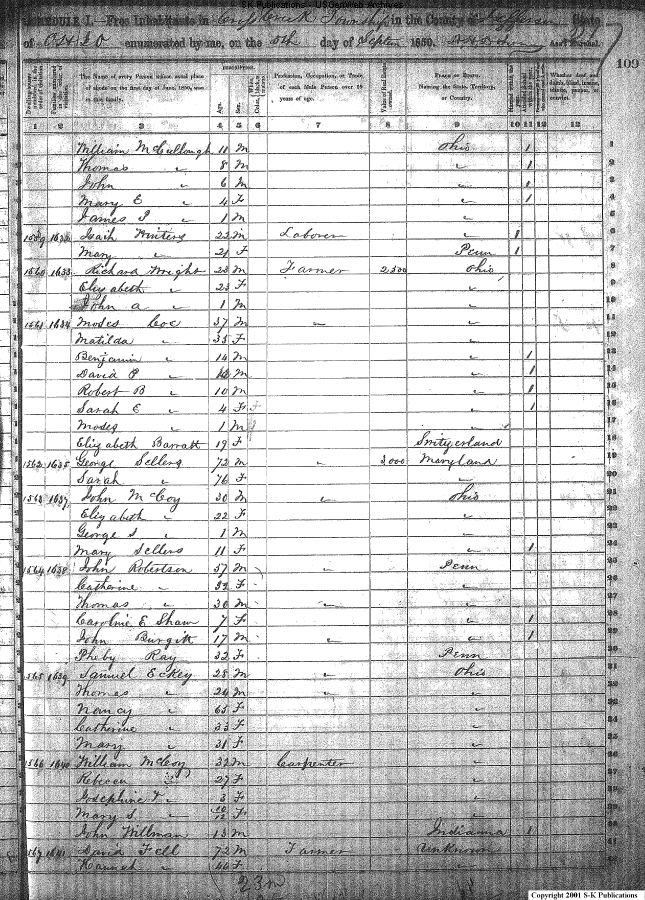 S-K Publications - USGenWeb Archives
SCHEDULE I.—Free Inhabitants in Township in the County of Jefferson State
of OHIO enumerated by me, on the day of Septem 1850. Ass't Marshal.
109
The Name of every Person whose usual place of abode on the first day of June, 1850, was in this family.
DESCRIPTION.
Age.
Sex.
Profession, Occupation, or Trade of each Male Person over 15 years of age.
Value of Real Estate owned.
PLACE OF BIRTH. Naming the State, Territory, or Country.
Whether deaf and dumb, blind, insane, idiotic, pauper, or convict.
1 2 3 4 5 6 7 8 9 10 11 12 13
William McCullough 11 M Ohio 1 1
Thomas " 8 M " 1 2
John " 6 M " 1 3
Mary E " 4 F " 1 4
James " 1 M " 5
1559 1632 Isaih Winters 22 M Laborer " 1 6
Mary " 21 F Penn 1 7
1560 1633 Richard Wright 23 M Farmer 2,500 Ohio 8
Elizabeth " 23 F " 9
John A " 1 M " 10
1561 1634 Moses Coe 37 M " " 11
Matilda " 35 F " 12
Benjamin " 14 M " 1 13
David P " M " 1 14
Robert B " 10 M " 1 15
Sarah E " 4 F " 1 16
Moses " 1 M " 17
Elizabeth Barratt 19 F Switzerland 18
1562 1635 George Sellers 72 M " 3,000 Maryland 19
Sarah " 76 F " 20
1563 1637 John McCoy 30 M " Ohio 21
Elizabeth " 22 F " 22
George S " 1 M " 23
Mary Sellers 11 F " 1 24
1564 1638 John Robertson 57 M " Penn 25
Catherine " F " 26
Thomas " 30 M " " 27
Caroline E Shaw 7 F " 1 28
John Burgitt 17 M " " 1 29
Pheby Ray 32 F Penn 30
1565 1639 Samuel Eckey 28 M " Ohio 31
Thomas " 24 M " " 32
Nancy " 65 F " 33
Catherine " 33 F " 34
Mary " 31 F " 35
1566 1640 William McCoy 32 M Carpenter " 36
Rebecca " 27 F " 37
Josephine " 3 F " 38
Mary S " 10/12 F " 39
John Willman 13 M Indianna 1 40
1567 1641 David Fell 72 M Farmer Unknown 41
Hannah " 44 F " 42
23 m
Copyright 2001 S-K Publications